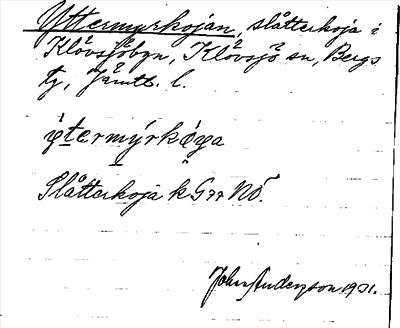 Yttermyrkojan, slåtterkoja i
Klövsjöbyn, Klövsjö sn, Bergs
tg, Jämtl. l.
ÿtermýrkòya
Slåtterkoja k G77 NÖ.
John Anderzon 1931.